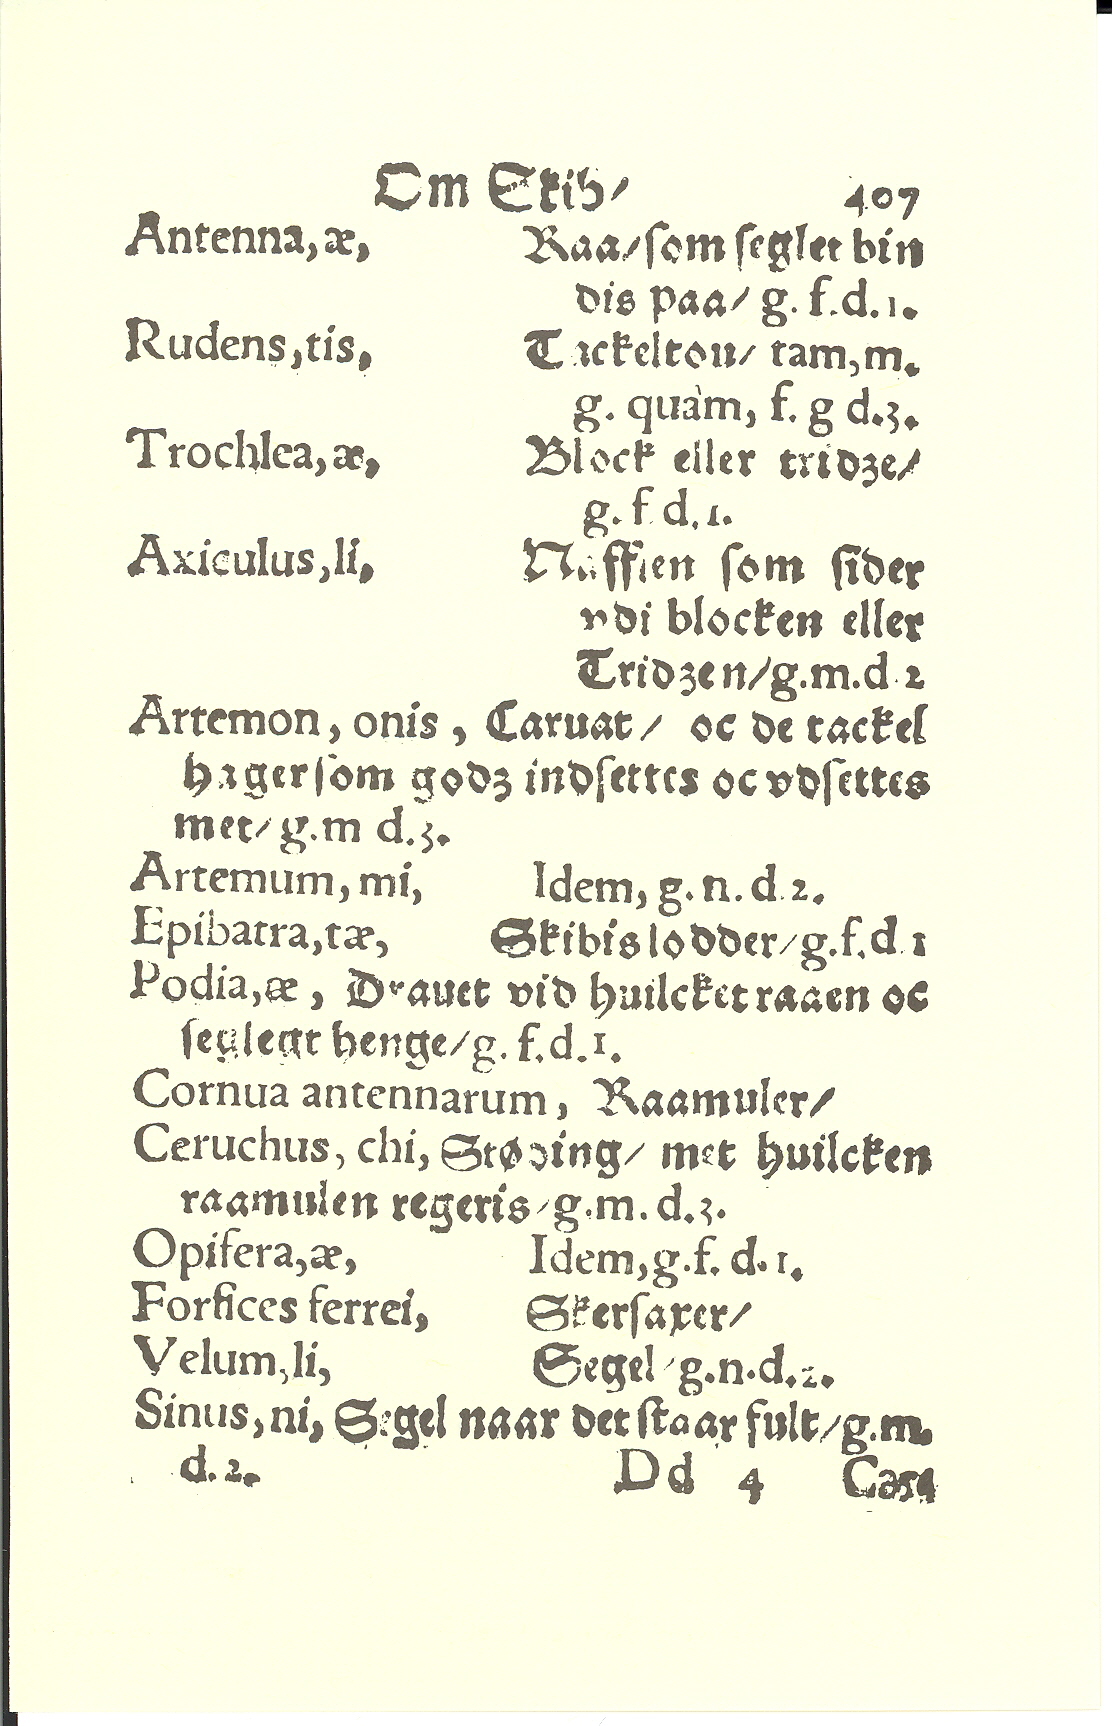 Om Skib/ 407
Antenna,æ, Raa/som seglet bin
dis paa/ g. f.d.1.
Rudens,tis, Tackeltou/ tam,m.
g. quàm, f. g d.3.
Trochlea,æ, Block eller tridze/
g. f d.1.
Axiculus,li, som sider
vdi blocken eller
Tridzen/g.m.d.2
Artemon, onis, Caruat/ oc de tackel
hager som godz indsettes oc vdsettes
met/ g.m d.3.
Artemum, mi, Idem, g. n. d.2.
Epibatra,tæ, Skibislodder/g.f.d.1
Podia,æ, Drauet vid huilcket raaen oc
seglegt henge/g. f.d.1.
Cornua antennarum, Raamuler/
Ceruchus, chi, Støding/ met huilcken
raamulen regeris/g.m.d.3.
Opifera,æ, Idem,g.f. d.1.
Forfices ferrei, Skersaxer/
Velum,li, Segel/g.n.d.2.
Sinus,ni, Segel naar det staar fult/g.m.
d.2. Dd 4